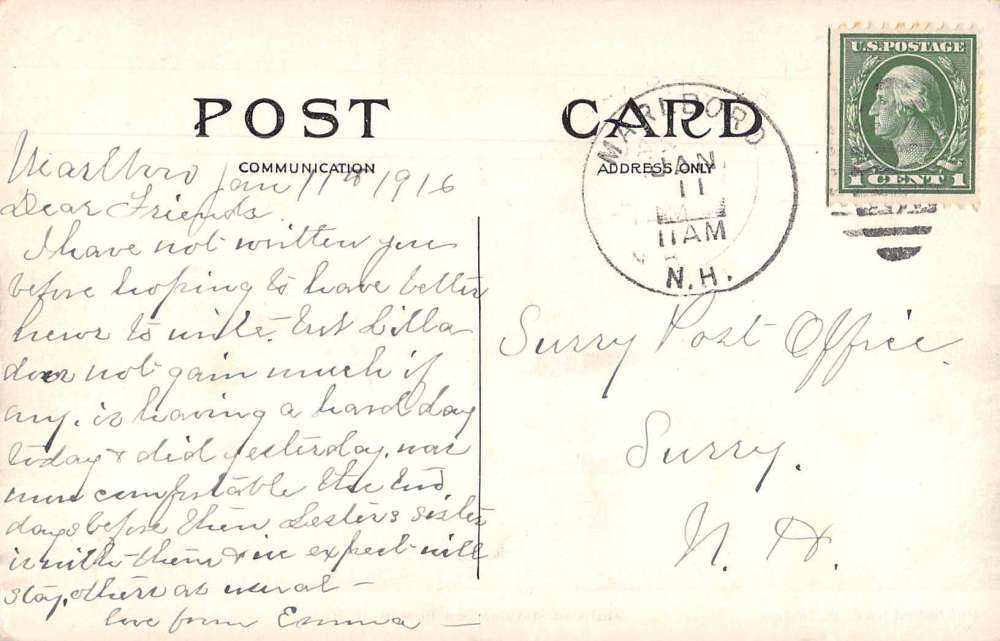 POST CARD
COMMUNICATION
ADDRESS ONLY
U.S. POSTAGE
1 CENT 1
MARLBORO
JAN
11
11 AM
N.H.
Marlboro Jan 11th 1916
Dear Friends
I have not written you
before hoping to have better
news to write. but Lilla
does not gain much if
any. is having a hard day
today & did yesterday. was
more comfortable the two
days before then Lester's sister
is with them & we expect will
stay. others as usual —
love from Emma —
Surry Post Office.
Surry.
N. H.